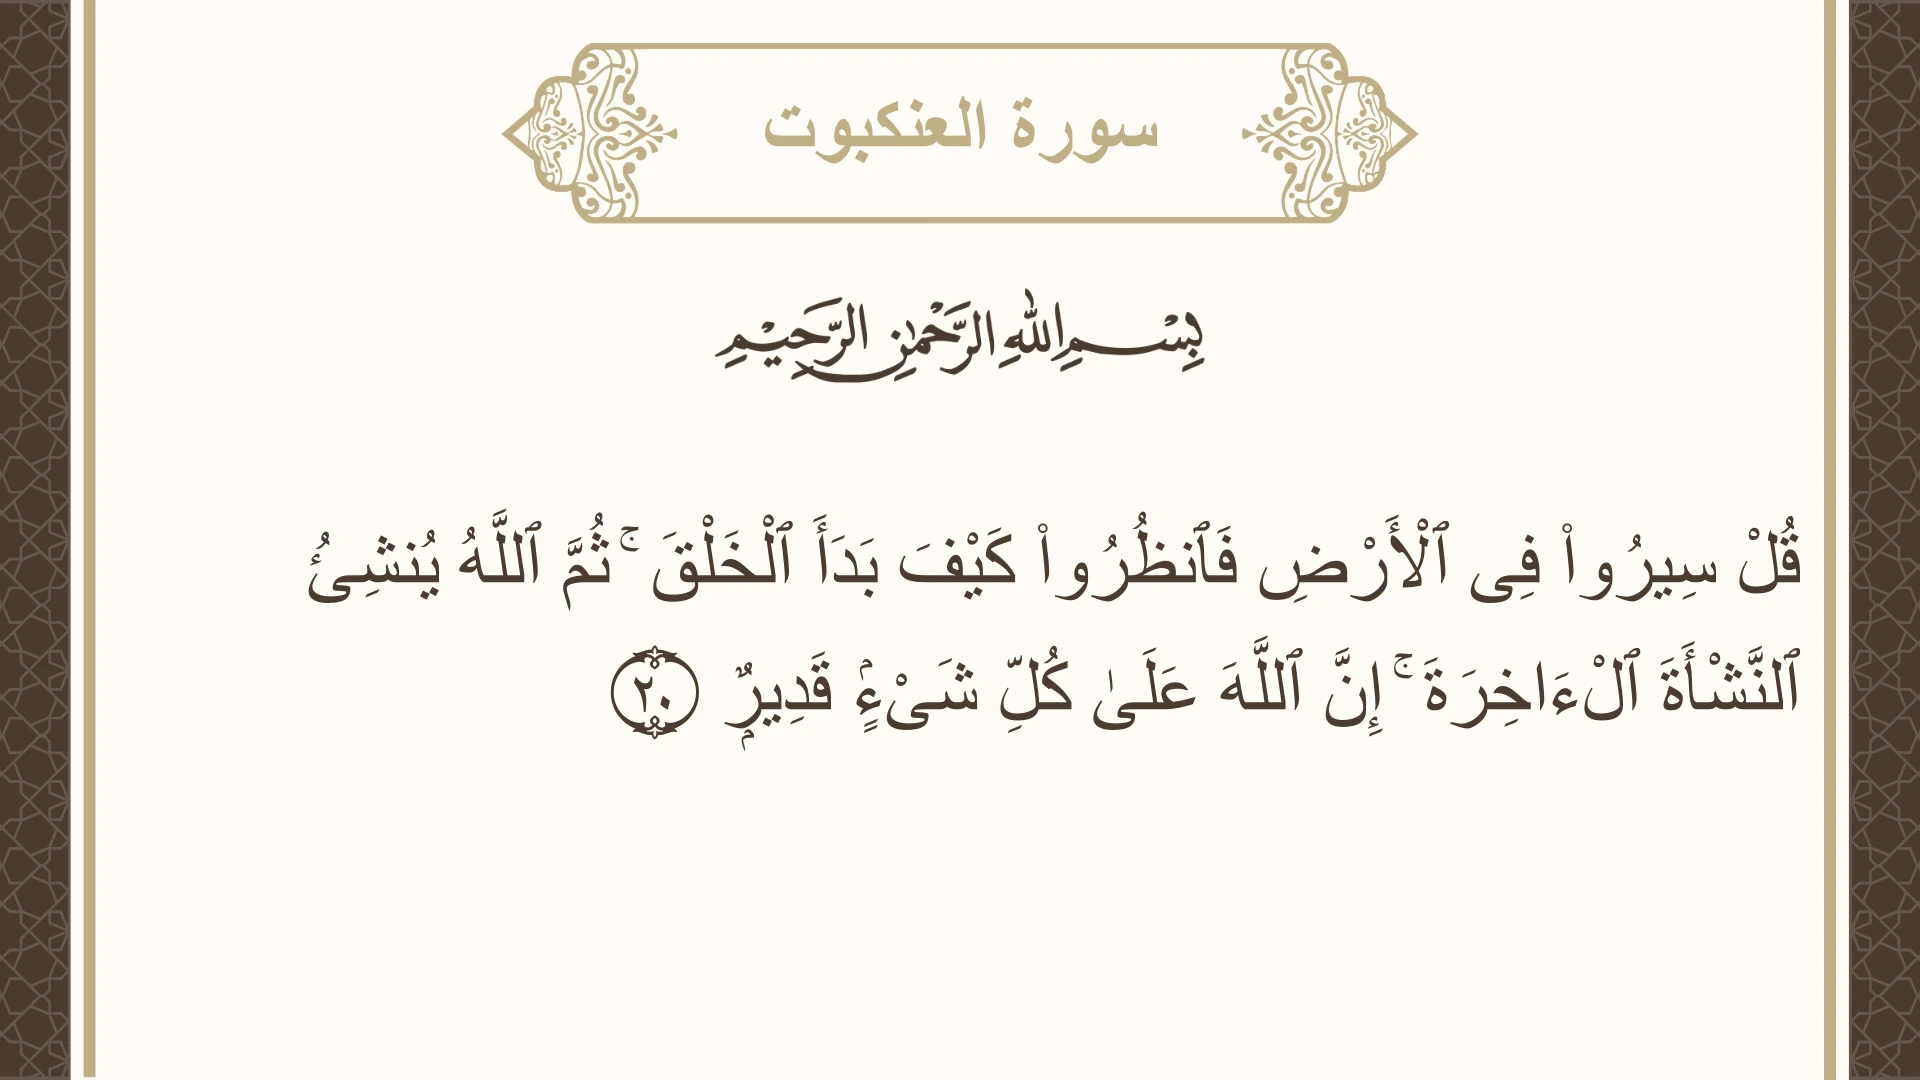 سورة العنكبوت
بِسْمِ اللهِ الرَّحْمٰنِ الرَّحِيْمِ
قُلْ سِيرُوا۟ فِى ٱلْأَرْضِ فَٱنظُرُوا۟ كَيْفَ بَدَأَ ٱلْخَلْقَ ۚ ثُمَّ ٱللَّهُ يُنشِئُ
ٱلنَّشْأَةَ ٱلْءَاخِرَةَ ۚ إِنَّ ٱللَّهَ عَلَىٰ كُلِّ شَىْءٍۢ قَدِيرٌۭ ٢٠